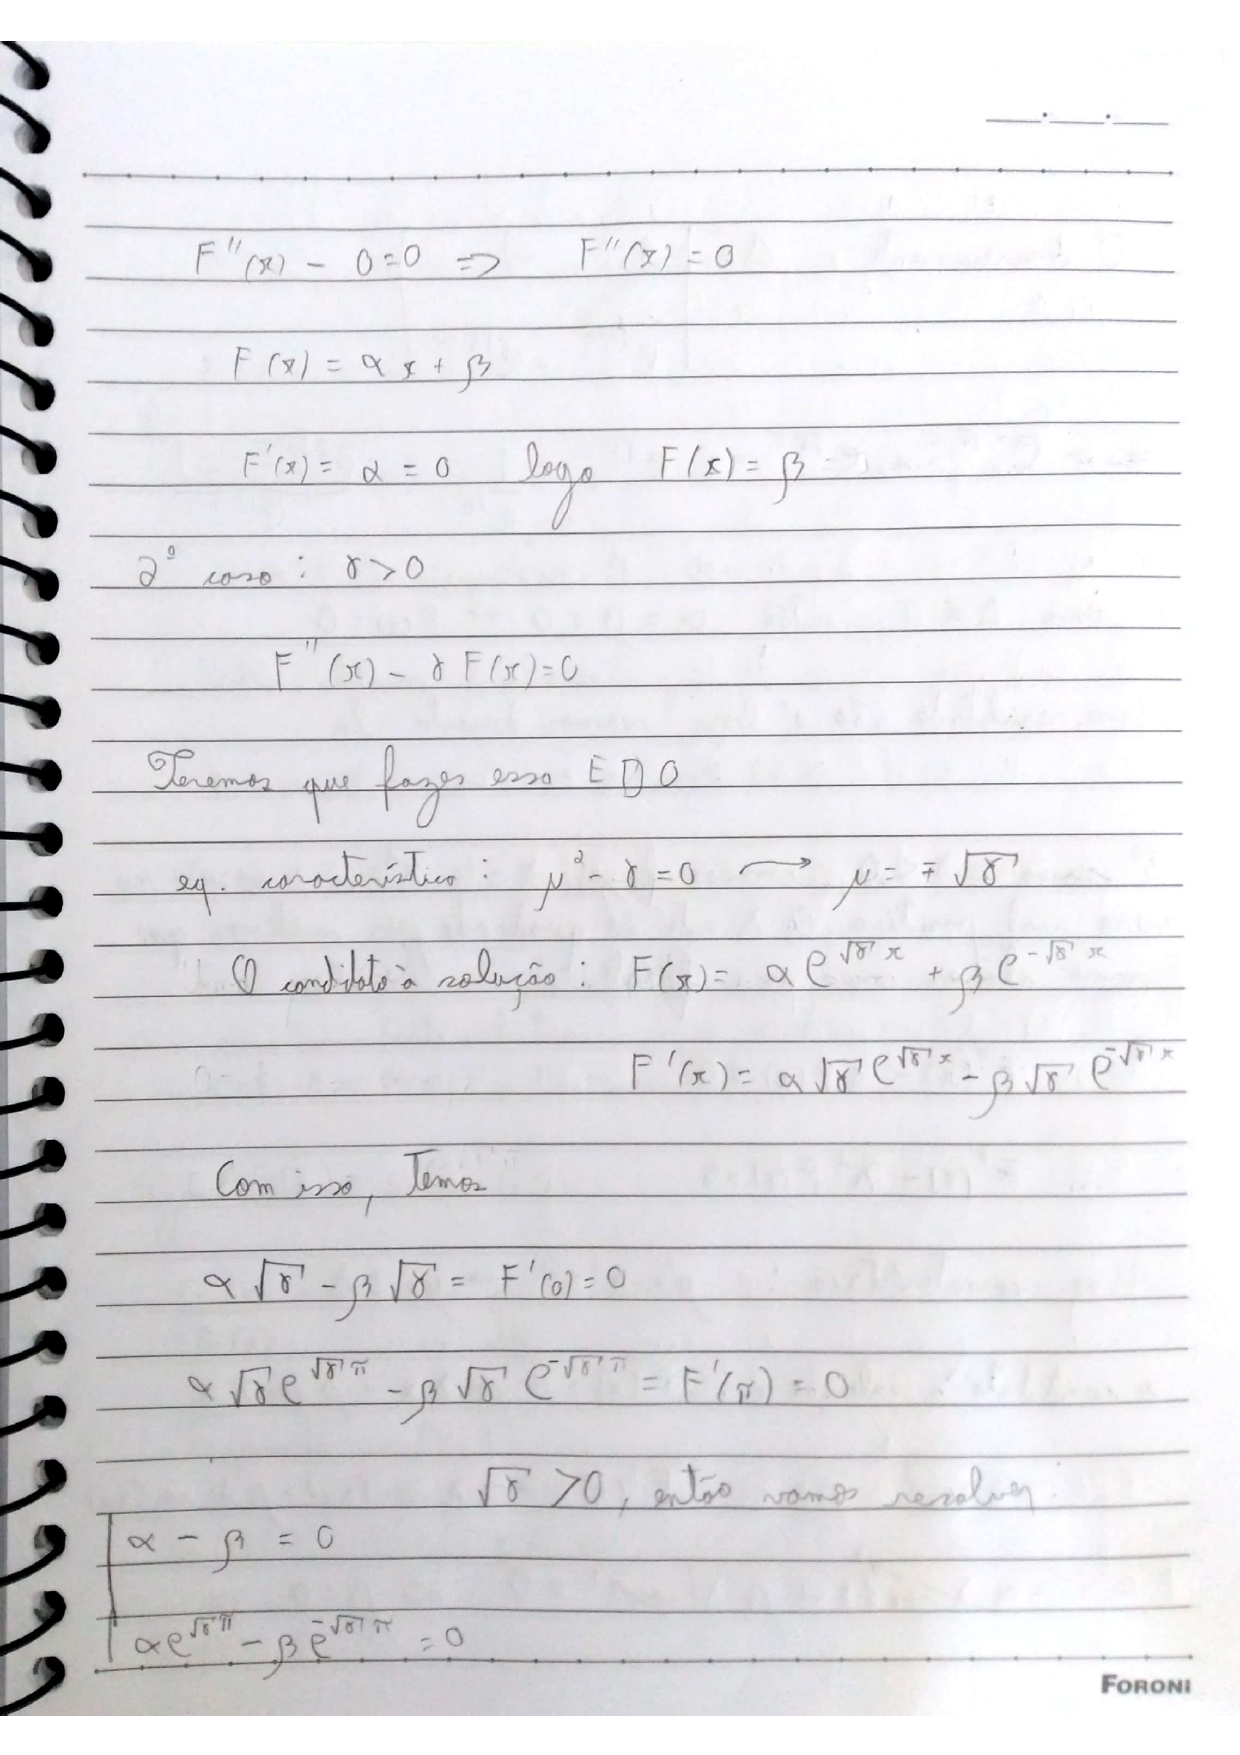 F''(x) - 0=0 => F''(x) = 0
F(x) = αx + β
F'(x) = α = 0 logo F(x) = β
2º caso : γ>0
F''(x) - γ F(x)=0
Teremos que fazer essa EDO
eq. característica : μ² - γ = 0 → μ = ∓ √γ
O candidato à solução : F(x) = α e^{√γ x} + β e^{-√γ x}
F'(x) = α √γ e^{√γ x} - β √γ e^{-√γ x}
Com isso, temos
α √γ - β √γ = F'(0) = 0
α √γ e^{√γ π} - β √γ e^{-√γ π} = F'(π) = 0
√γ > 0, então vamos resolver
α - β = 0
α e^{√γ π} - β e^{-√γ π} = 0
FORONI